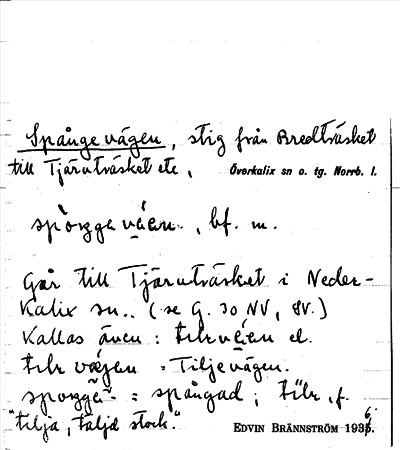 Spångevägen, stig från Bredträsket
till Tjäruträsket etc,
Överkalix sn o. tg. Norrb. l.
bf. m.
Går till Tjäruträsket i Neder-
Kalix sn.. (se G. 30 NV, 8V.)
Kallas även: el.
= Tiljevägen.
= spångad; f.
"tilja, täljd stock".
EDVIN BRÄNNSTRÖM 1936.